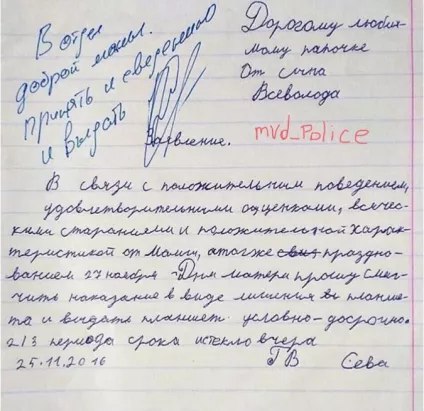 В отдел
доброй мамы.
Принять к сведению
и выдать
Дорогому люби-
мому папочке
От сына
Всеволода
mvd_police
Заявление.
В связи с положительным поведением,
удовлетворительными оценками, всячес-
кими стараниями и положительной харак-
теристикой от Мамы, а также праздно-
ванием 27 ноября - Дня матери прошу смяг-
чить наказание в виде лишения планше-
та и выдать планшет условно-досрочно.
2/3 периода срока истекло вчера
25.11.2016 Сева